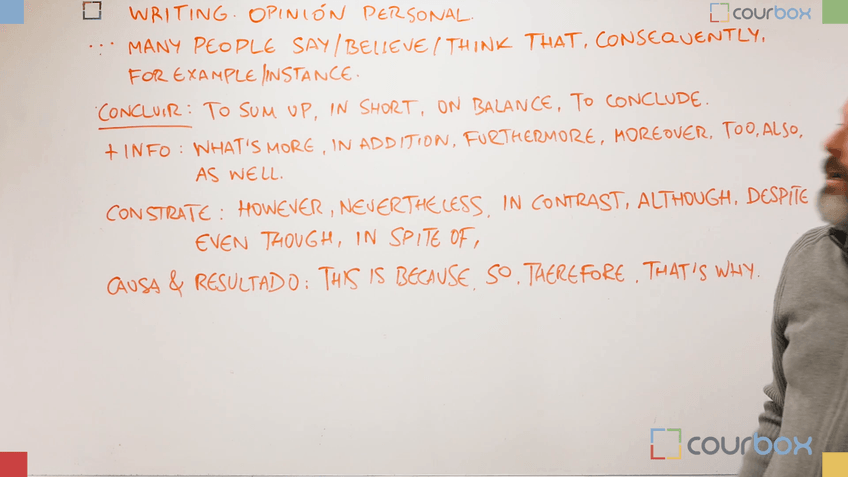 WRITING. OPINIÓN PERSONAL.
courbox
... MANY PEOPLE SAY/BELIEVE/THINK THAT, CONSEQUENTLY,
FOR EXAMPLE/INSTANCE.
CONCLUIR: TO SUM UP, IN SHORT, ON BALANCE, TO CONCLUDE.
+ INFO: WHAT'S MORE, IN ADDITION, FURTHERMORE, MOREOVER, TOO, ALSO,
AS WELL.
CONSTRATE: HOWEVER, NEVERTHELESS, IN CONTRAST, ALTHOUGH, DESPITE
EVEN THOUGH, IN SPITE OF,
CAUSA & RESULTADO: THIS IS BECAUSE, SO, THEREFORE, THAT'S WHY.
courbox